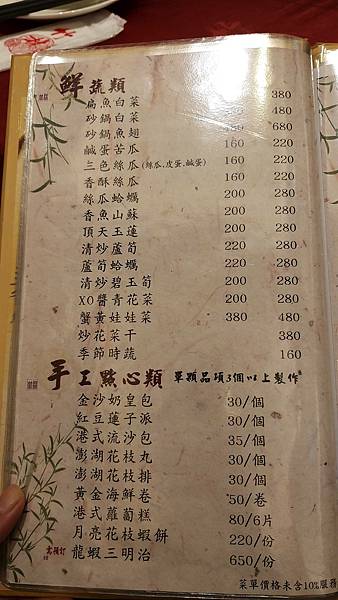 鮮蔬類
扁魚白菜 380
砂鍋白菜 480
砂鍋魚翅 680
鹹蛋苦瓜 160 220
三色絲瓜(絲瓜.皮蛋.鹹蛋) 160 220
香酥絲瓜 160 220
絲瓜蛤蠣 200 280
香魚山蘇 200 280
頂天玉蓮 200 280
清炒蘆筍 220 280
蘆筍蛤蠣 220 280
清炒碧玉筍 200 280
XO醬青花菜 200 280
蟹黃娃娃菜 380 480
炒花菜干 380
季節時蔬 160
手工點心類 單類品項3個以上製作
金沙奶皇包 30/個
紅豆蓮子派 30/個
港式流沙包 35/個
澎湖花枝丸 30/個
澎湖花枝排 30/個
黃金海鮮卷 50/卷
港式蘿蔔糕 80/6片
月亮花枝蝦餅 220/份
需預訂 龍蝦三明治 650/份
菜單價格未含10%服務